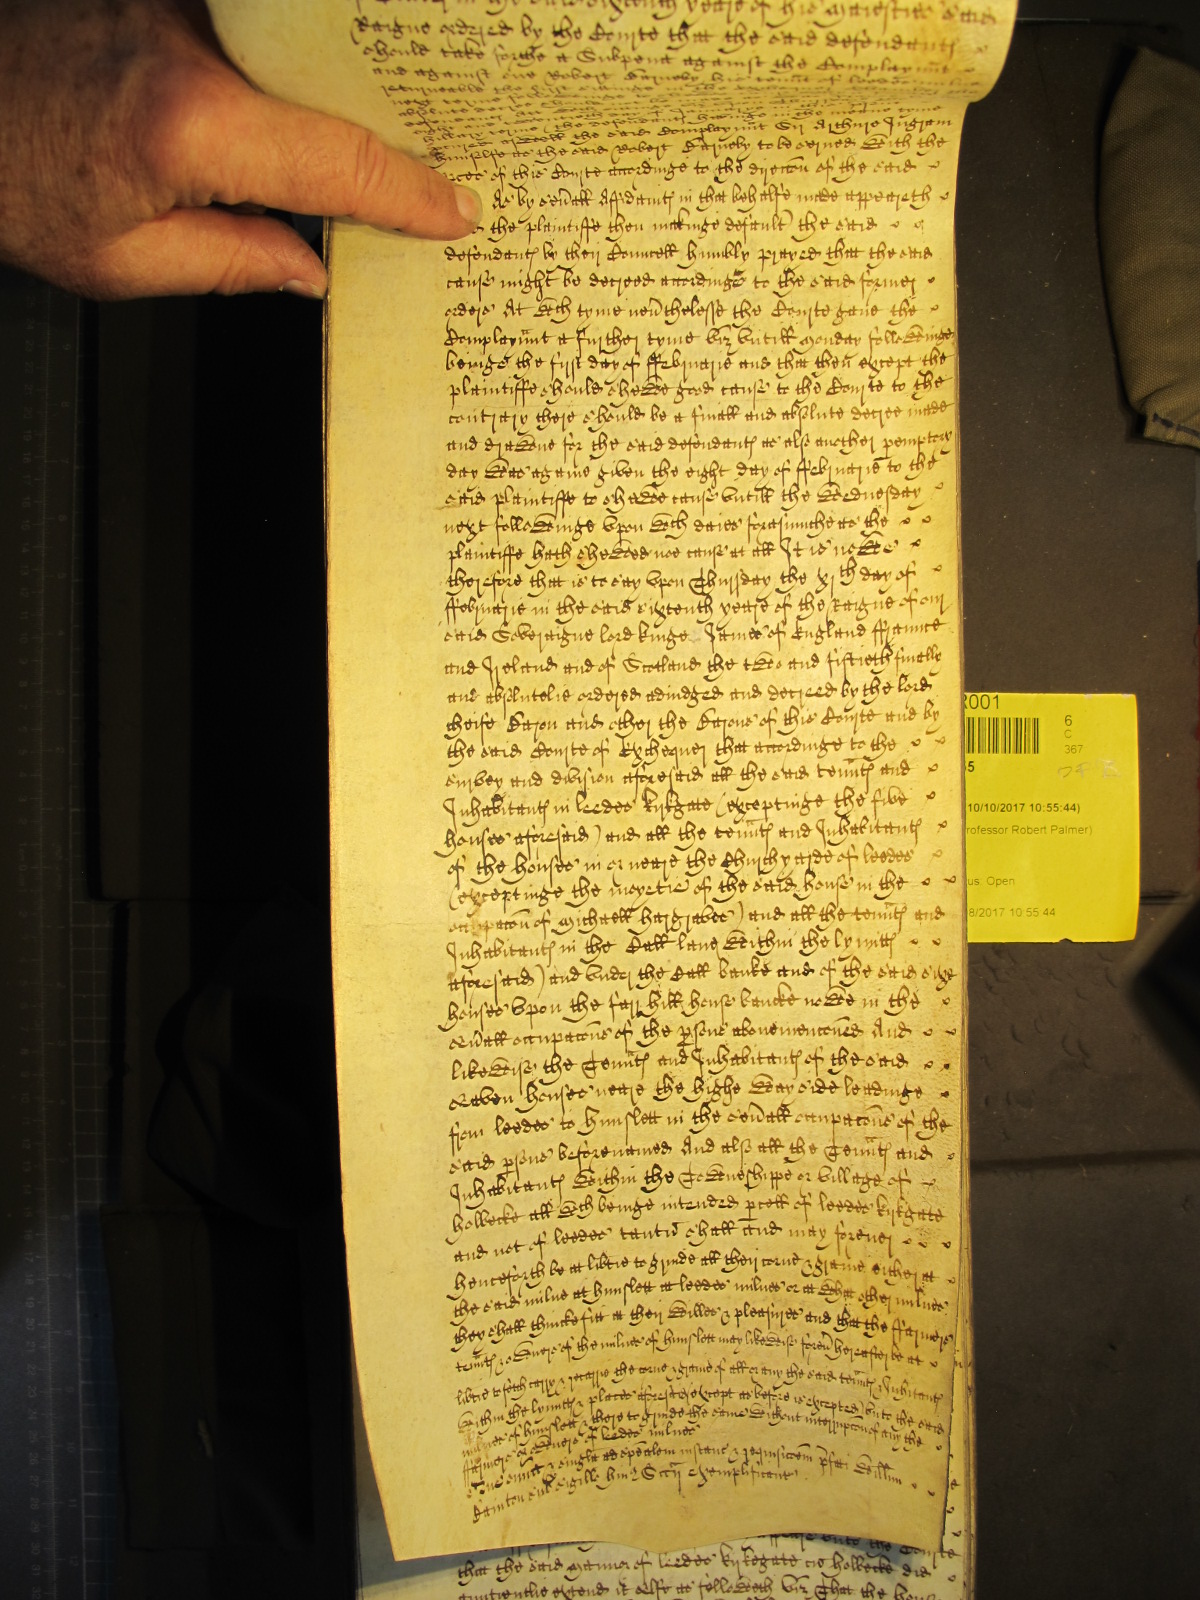 in the said sixtenth yeare of his Majesties said
Raigne ordered by the Courte that the said defendantes
should take forthe a Subpena against the Complaynnt
and against one Robert Barneby his tennt of
Arthure Ingram
as the said Robert Barneby to be served with the
of this Courte accordinge to the direccon of the said
As by sevall Affidavits in that behalfe made appeareth
the plaintiffe then makinge default the said
defendants by their Councell humbly prayed that the said
cause might be decreed accordinge to the said former
order At wch tyme nevthelesse the Courte gave the
Complaynnt a further tyme viz untill Monday followinge
beinge the first day of ffebruarie and that then except the
plaintiffe should shewe good cause to the Courte to the
contrary there should be a finall and absolute decree made
and drawne for the said defendants as also another pemptory
day was againe given the eight day of ffebruarie to the
said plaintiffe to shewe cause untill the Wednesday
next followinge upon wch daies forasmuche as the
plaintiffe hath shewed noe cause at all It is nowe
therefore that is to say upon Thursday the xjth day of
ffebruarie in the said sixtenth yeare of the Raigne of our
said Soveraigne lord kinge James of England ffraunce
and Ireland and of Scotland the two and fiftieth finally
and absolutelie ordered adiudged and decreed by the lord
cheife Baron and other the Barons of this Courte and by
the said Courte of Exchequer that accordinge to the
survey and division aforesaid all the said tennts and
Inhabitants in leedes kirkgate (exceptinge the five
houses aforesaid) and all the tennts and Inhabitants
of the houses in or neare the Churchyarde of leedes
(exceptinge the moyetie of the said house in the
occupacon of Michaell hargraves) and all the tennts and
Inhabitants in the Call lane within the lymitts
aforesaid) and under the Call banke and of the said sixe
houses upon the farr hill house bancke nowe in the
sevall occupacons of the psons abovemenconed And
likewise the Tennts and Inhabitants of the said
seaven houses neare the highe way side leadinge
from leedes to hunslett in the sevall occupacons of the
said psons beforenamed And also all the Tennts and
Inhabitants within the Towneshippe or village of
holbecke all wch beinge intended pcell of leedes kirkgate
and not of leedes tantu shall and may forever
henceforth be at libtie to grinde all their corne & graine either at
the said milne at hunslett at leedes milnes or at what other milnes
they shall thincke fitt at their willes & pleasures and that the ffarmers
tennts & owners of the milnes of hunslett may likewise forevr hereafter be at
libtie to fetch carry & recarrie the corne & graine of all or any the said tennts & Inhabitants
within the lymitts & places aforesaid (except as before is excepted) unto the said
milnes of hunslett & there to grinde the same without interrupcon of any the
ffarmers or owners of leedes milnes
& singla ad spealem instanc & requisicoem pfati Willmi
sub sigillo huius Sccij exemplificant
that the said mannor of leedes kirkegate cu holbecke did
auntientlie extend it selfe as followeth viz That the
R001
6
C
367
10/10/2017 10:55:44)
rofessor Robert Palmer)
tus: Open
8/2017 10:55:44